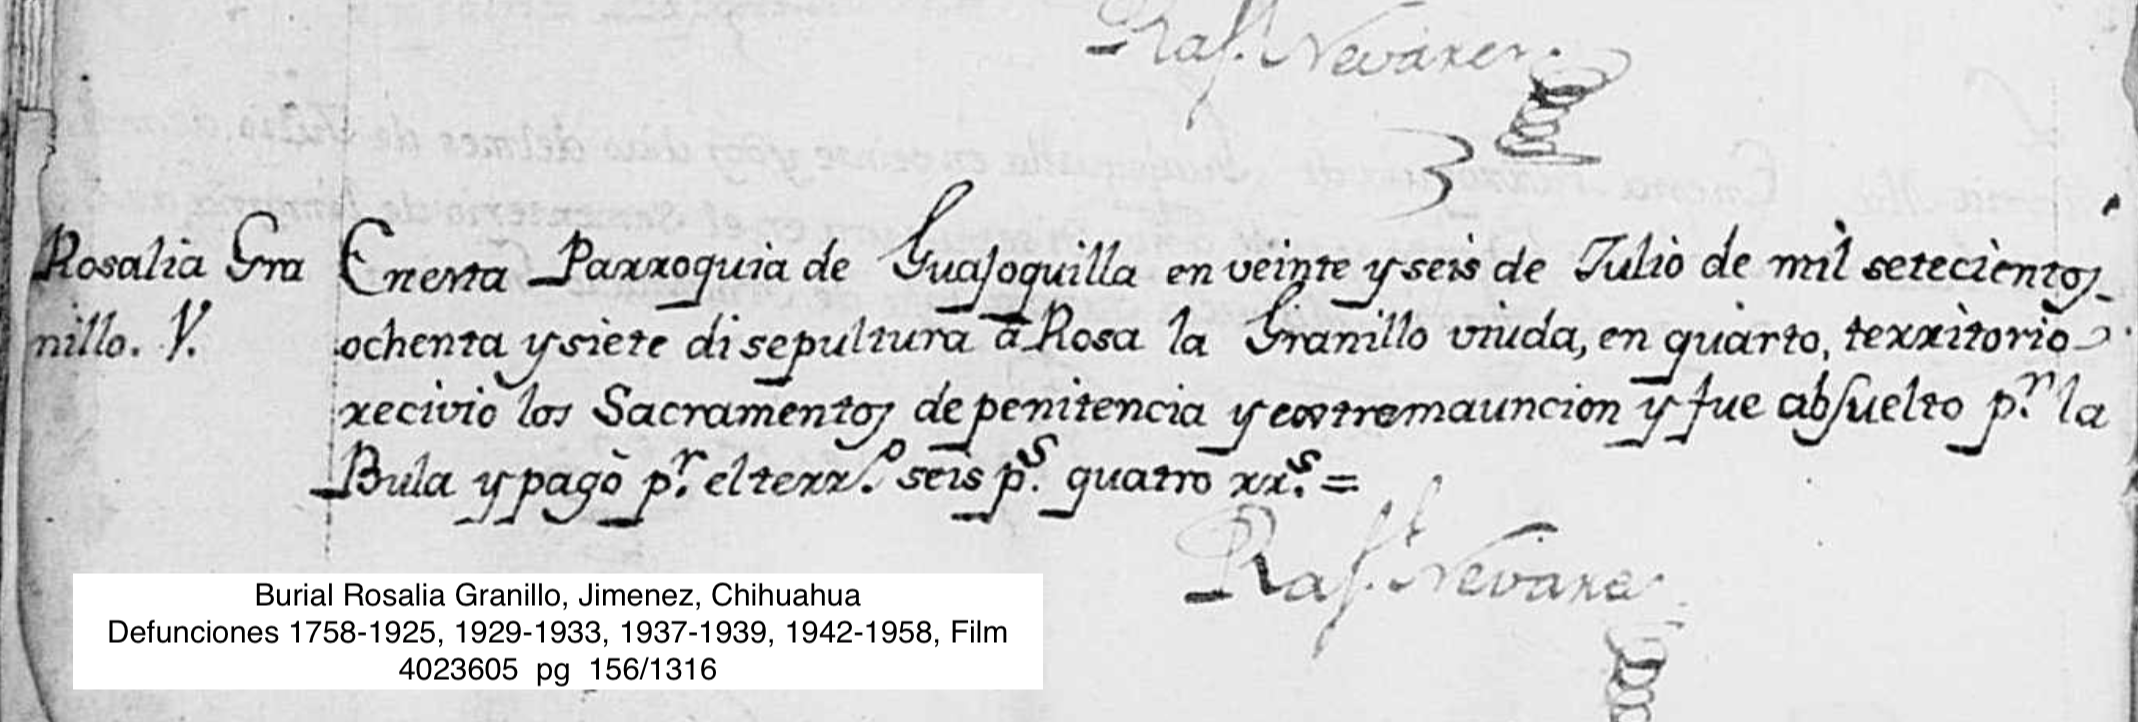 Raf.l Nevárez
Rosalia Gra
nillo. V.
En esta Parroquia de Guajoquilla en veinte y seis de Julio de mil setecientos
ochenta y siete di sepultura â Rosa la Granillo viuda, en quarto, territorio
recivio los Sacramentos de penitencia y extremauncion y fue absuelto p.r la
Bula y pagò p.r el terr.o seis p.s quatro rr.s =
Raf.l Nevarez
Burial Rosalia Granillo, Jimenez, Chihuahua
Defunciones 1758-1925, 1929-1933, 1937-1939, 1942-1958, Film
4023605 pg 156/1316